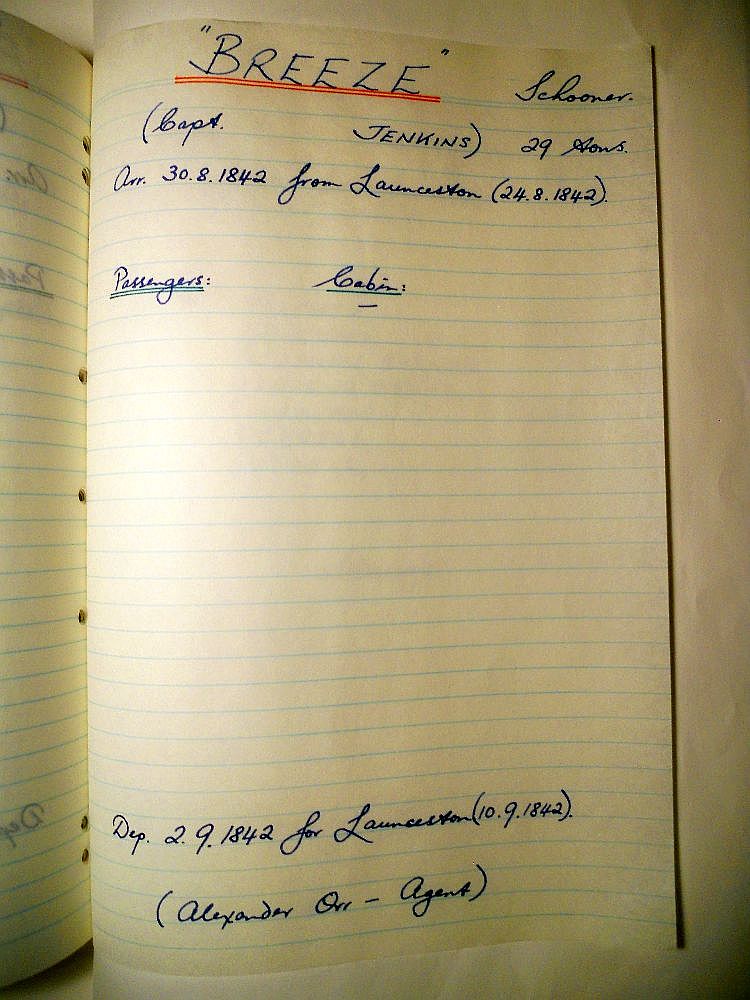 "BREEZE" Schooner.
(Capt. JENKINS) 29 tons.
Arr. 30.8.1842 from Launceston (24.8.1842).
Passengers: Cabin:
—
Dep. 2.9.1842 for Launceston (10.9.1842).
(Alexander Orr – Agent)